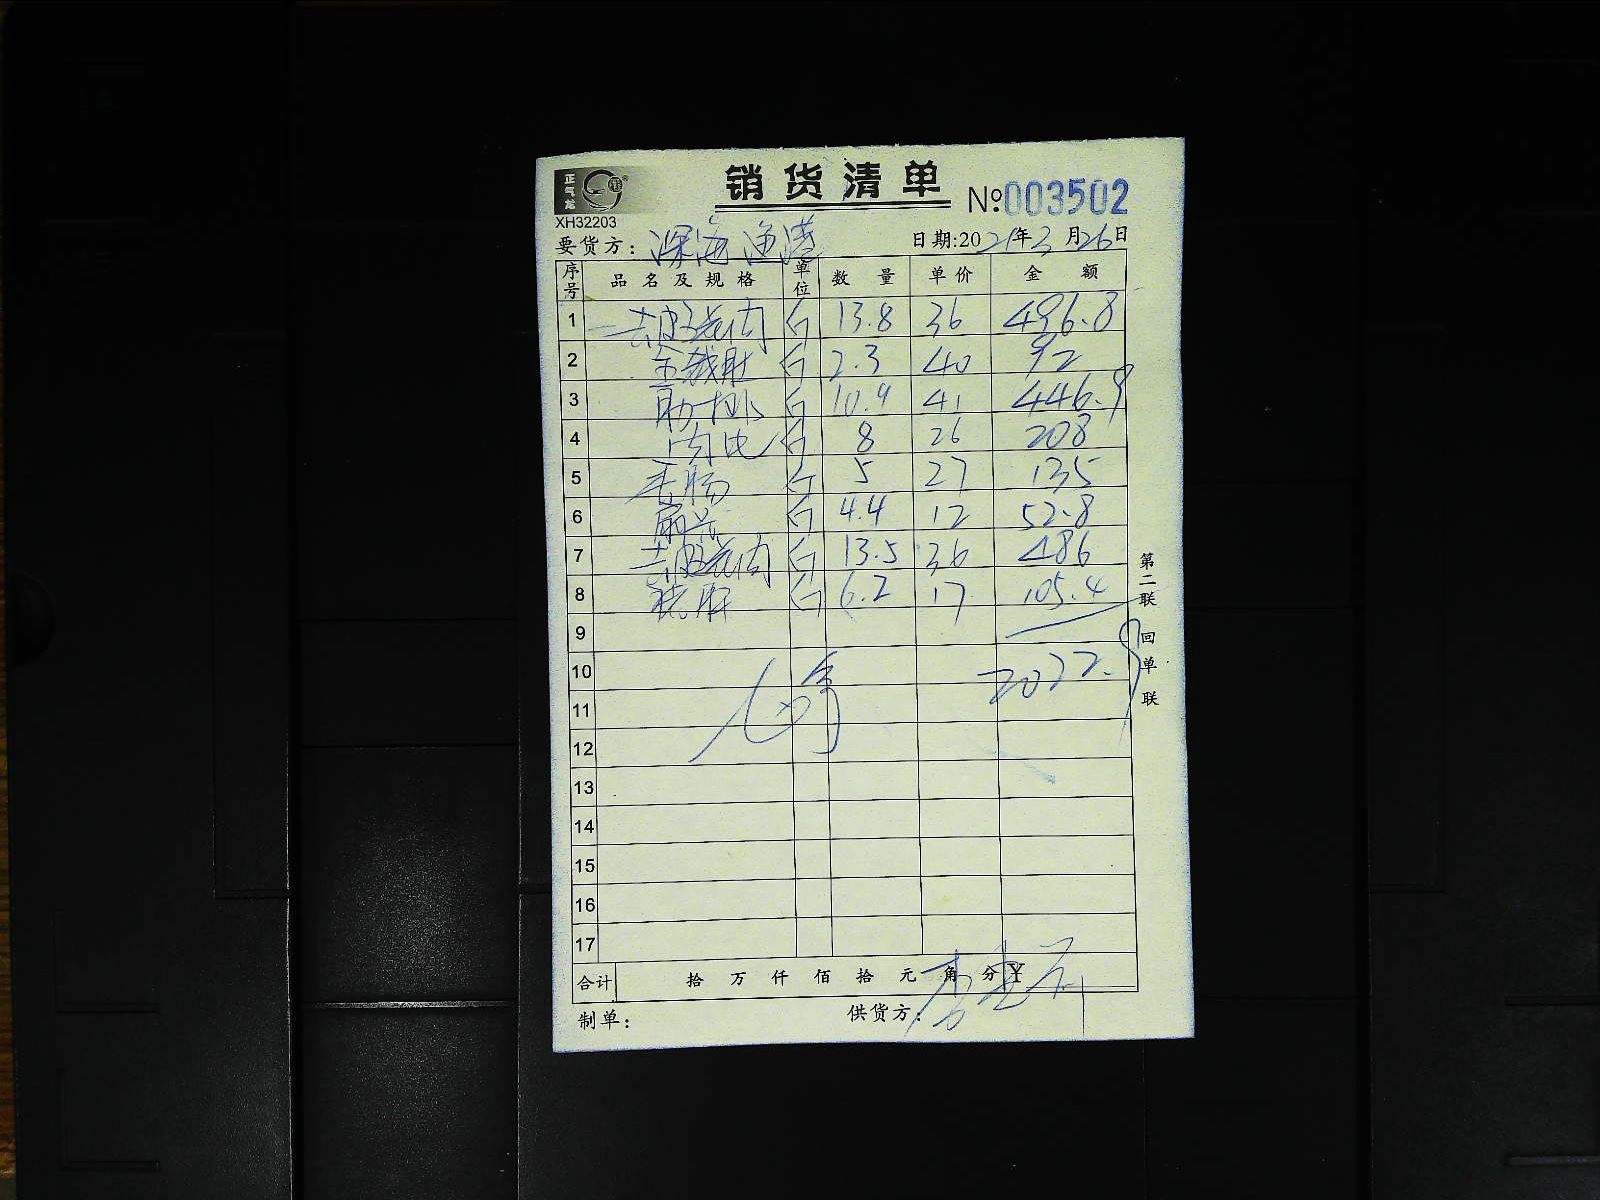 正气龙
销货清单
XH32203
№003502
要货方: 深海渔港
日期:2021年3月26日
序号 品名及规格 单位 数量 单价 金额
1 去皮五花肉 斤 13.8 36 496.8
2 斤 2.3 40 92
3 肋排 斤 10.9 41 446.9
4 斤 8 26 208
5 毛肠 斤 5 27 135
6 斤 4.4 12 52.8
7 去皮五花肉 斤 13.5 36 486
8 斤 6.2 17 105.4
9
10 2022.9
11
12
13
14
15
16
17
合计 拾 万 仟 佰 拾 元 角 分 ¥
制单: 供货方:
第二联 回单联